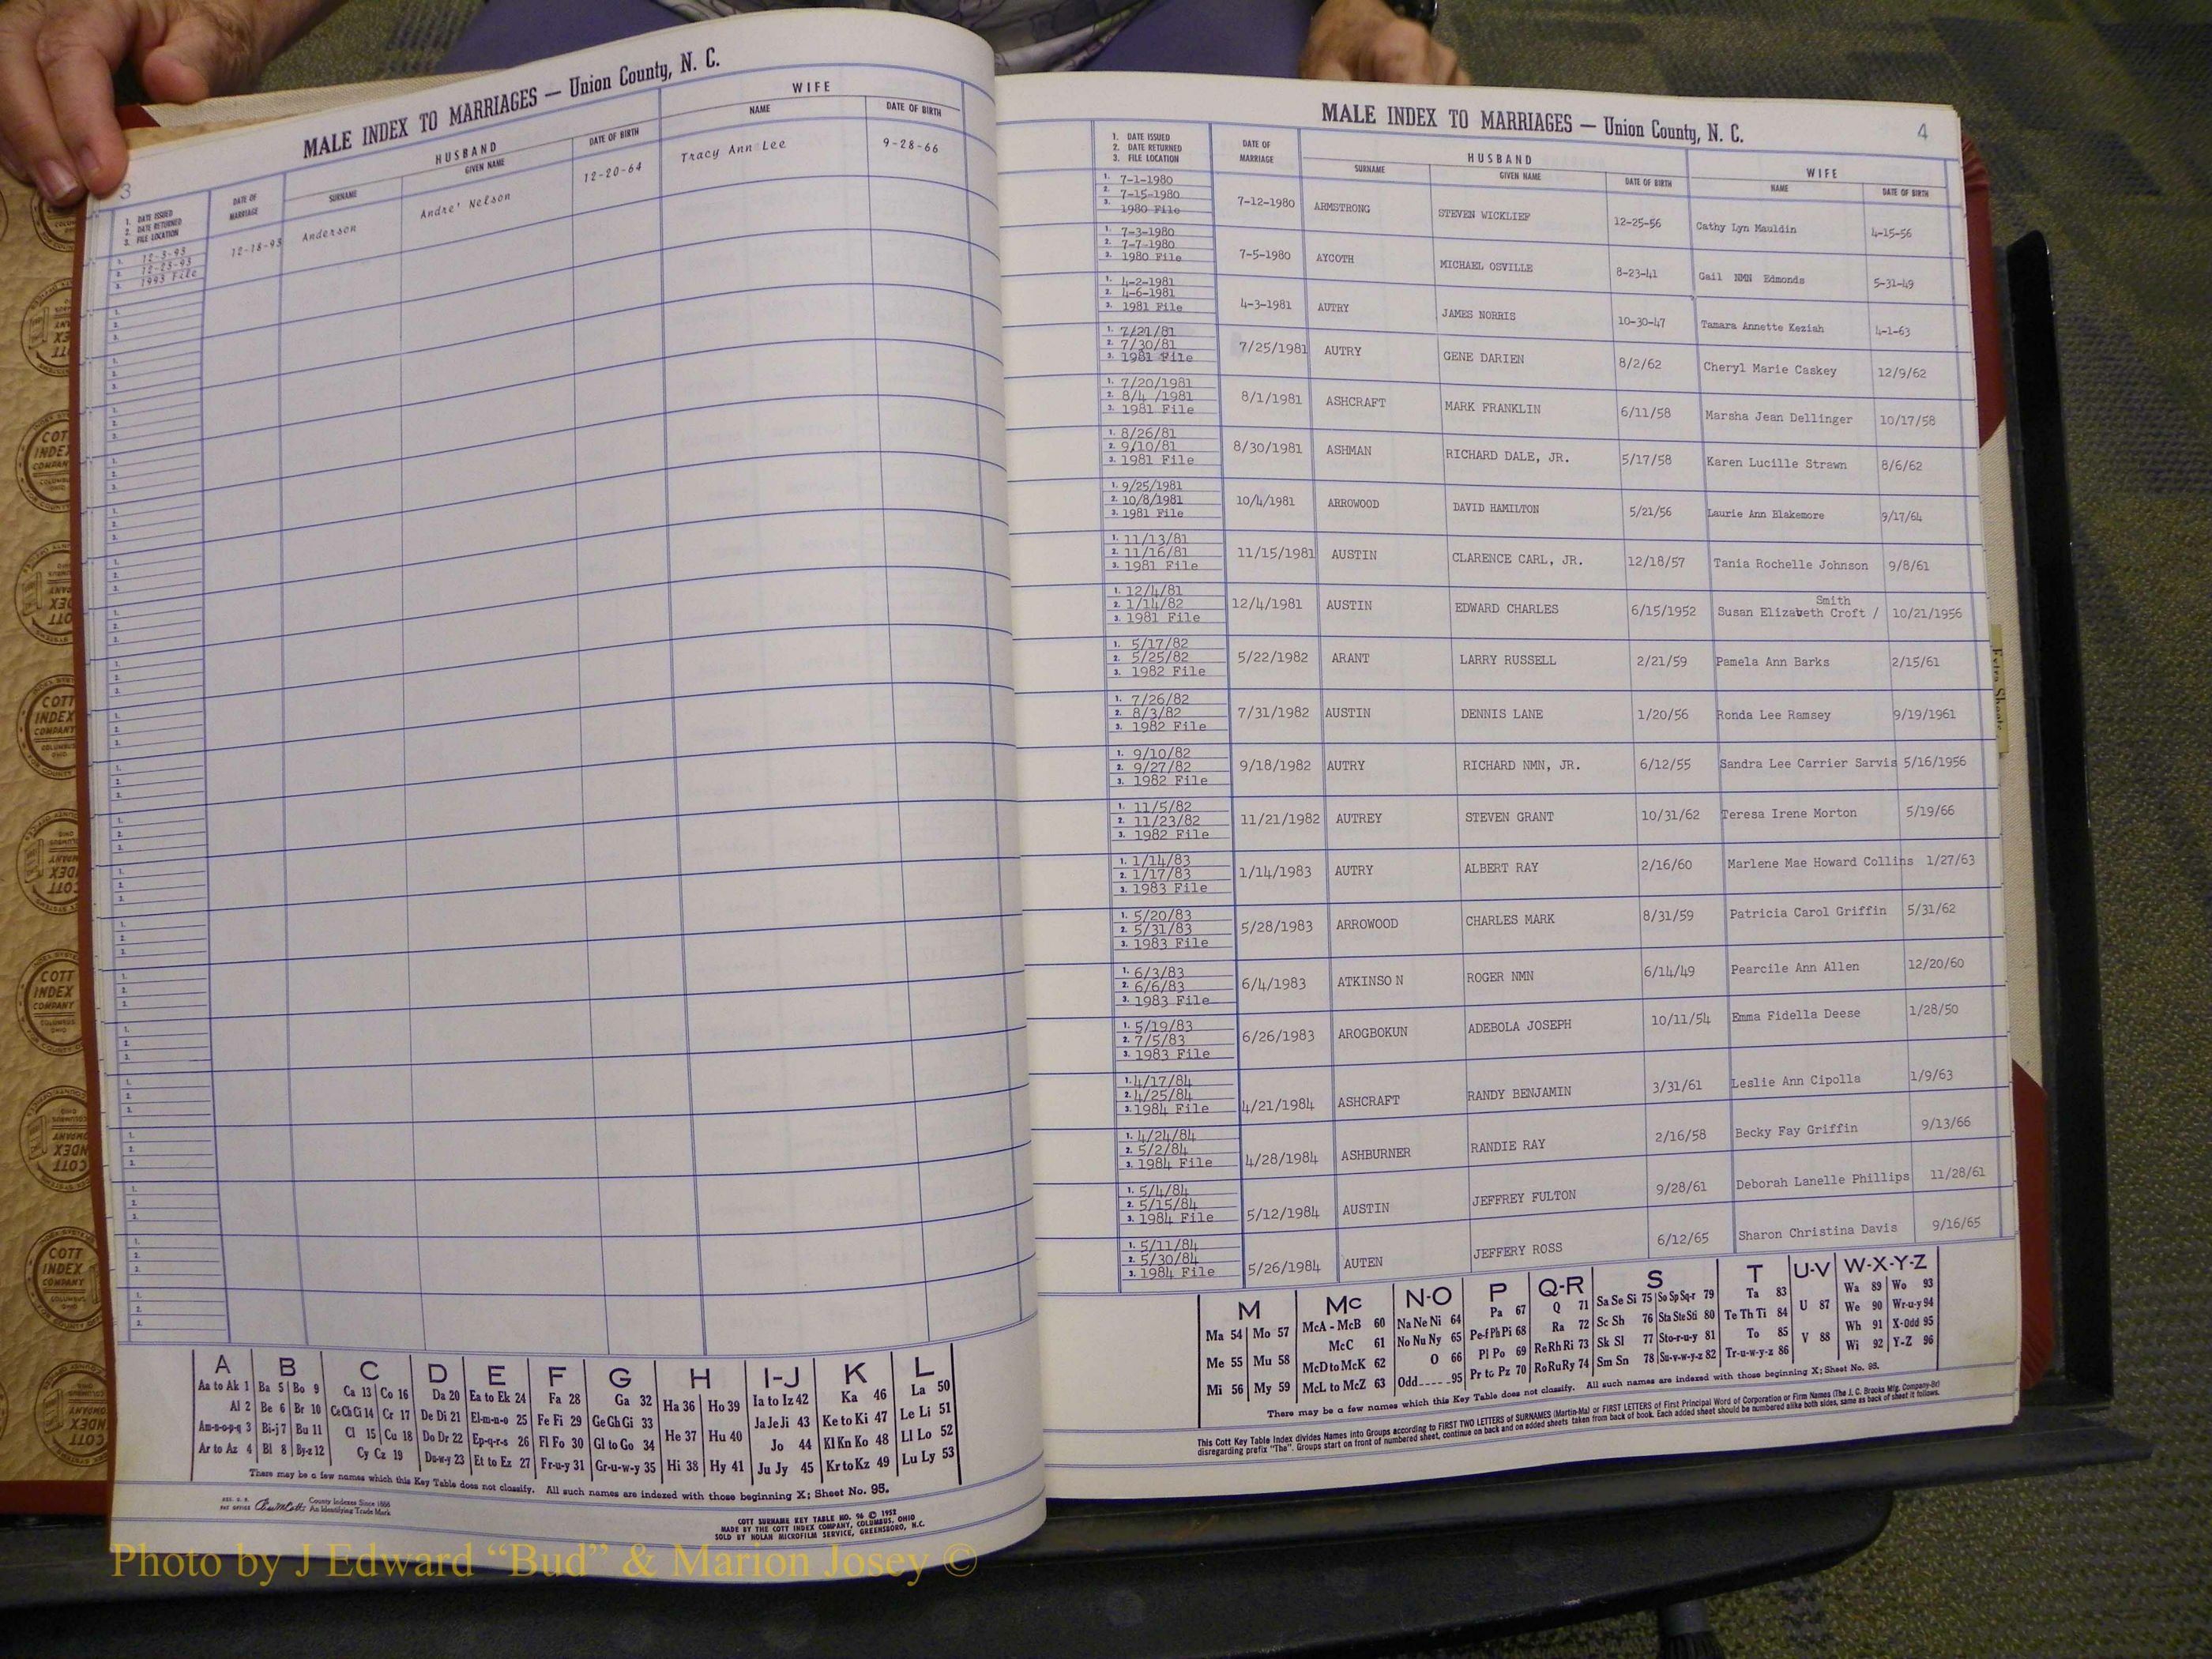 MALE INDEX TO MARRIAGES — Union County, N. C.
3
HUSBAND
WIFE
1. DATE ISSUED
2. DATE RETURNED
3. FILE LOCATION
DATE OF MARRIAGE
SURNAME
GIVEN NAME
DATE OF BIRTH
NAME
DATE OF BIRTH
1. 12-3-93
2. 12-23-93
3. 1993 File
12-18-93 Anderson Andre' Nelson 12-20-64 Tracy Ann Lee 9-28-66
A B C D E F G H I-J K L
Aa to Ak 1 Ba 5 Bo 9 Ca 13 Co 16 Da 20 Ea to Ek 24 Fa 28 Ga 32 Ha 36 Ho 39 Ia to Iz 42 Ka 46 La 50
Al 2 Be 6 Br 10 Ce Ch Ci 14 Cr 17 De Di 21 El-m-n-o 25 Fe Fi 29 Ge Gh Gi 33 He 37 Hu 40 Ja Je Ji 43 Ke to Ki 47 Le Li 51
Am-n-o-p-q 3 Bi-j 7 Bu 11 Cl 15 Cu 18 Do Dr 22 Ep-q-r-s 26 Fl Fo 30 Gl to Go 34 Hi 38 Hy 41 Jo 44 Kl Kn Ko 48 Ll Lo 52
Ar to Az 4 Bl 8 By-z 12 Cy Cz 19 Du-w-y 23 Et to Ez 27 Fr-u-y 31 Gr-u-w-y 35 Ju Jy 45 Kr to Kz 49 Lu Ly 53
There may be a few names which this Key Table does not classify. All such names are indexed with those beginning X; Sheet No. 95.
County Indexes Since 1888
An Identifying Trade Mark
COTT SURNAME KEY TABLE NO. 96 © 1952
MADE BY THE COTT INDEX COMPANY, COLUMBUS, OHIO
SOLD BY NOLAN MICROFILM SERVICE, GREENSBORO, N.C.
MALE INDEX TO MARRIAGES — Union County, N. C.
4
HUSBAND
WIFE
1. DATE ISSUED
2. DATE RETURNED
3. FILE LOCATION
DATE OF MARRIAGE
SURNAME
GIVEN NAME
DATE OF BIRTH
NAME
DATE OF BIRTH
1. 7-1-1980
2. 7-15-1980
3. 1980 File
7-12-1980 ARMSTRONG STEVEN WICKLIEF 12-25-56 Cathy Lyn Mauldin 4-15-56
1. 7-3-1980
2. 7-7-1980
3. 1980 File
7-5-1980 AYCOTH MICHAEL OSVILLE 8-23-41 Gail NMN Edmonds 5-31-49
1. 4-2-1981
2. 4-6-1981
3. 1981 File
4-3-1981 AUTRY JAMES NORRIS 10-30-47 Tamara Annette Keziah 4-1-63
1. 7/21/81
2. 7/30/81
3. 1981 File
7/25/1981 AUTRY GENE DARIEN 8/2/62 Cheryl Marie Caskey 12/9/62
1. 7/20/1981
2. 8/4 /1981
3. 1981 File
8/1/1981 ASHCRAFT MARK FRANKLIN 6/11/58 Marsha Jean Dellinger 10/17/58
1. 8/26/81
2. 9/10/81
3. 1981 File
8/30/1981 ASHMAN RICHARD DALE, JR. 5/17/58 Karen Lucille Strawn 8/6/62
1. 9/25/1981
2. 10/8/1981
3. 1981 File
10/4/1981 ARROWOOD DAVID HAMILTON 5/21/56 Laurie Ann Blakemore 9/17/64
1. 11/13/81
2. 11/16/81
3. 1981 File
11/15/1981 AUSTIN CLARENCE CARL, JR. 12/18/57 Tania Rochelle Johnson 9/8/61
1. 12/4/81
2. 1/14/82
3. 1981 File
12/4/1981 AUSTIN EDWARD CHARLES 6/15/1952 Susan Elizabeth Croft / Smith 10/21/1956
1. 5/17/82
2. 5/25/82
3. 1982 File
5/22/1982 ARANT LARRY RUSSELL 2/21/59 Pamela Ann Barks 2/15/61
1. 7/26/82
2. 8/3/82
3. 1982 File
7/31/1982 AUSTIN DENNIS LANE 1/20/56 Ronda Lee Ramsey 9/19/1961
1. 9/10/82
2. 9/27/82
3. 1982 File
9/18/1982 AUTRY RICHARD NMN, JR. 6/12/55 Sandra Lee Carrier Sarvis 5/16/1956
1. 11/5/82
2. 11/23/82
3. 1982 File
11/21/1982 AUTREY STEVEN GRANT 10/31/62 Teresa Irene Morton 5/19/66
1. 1/14/83
2. 1/17/83
3. 1983 File
1/14/1983 AUTRY ALBERT RAY 2/16/60 Marlene Mae Howard Collins 1/27/63
1. 5/20/83
2. 5/31/83
3. 1983 File
5/28/1983 ARROWOOD CHARLES MARK 8/31/59 Patricia Carol Griffin 5/31/62
1. 6/3/83
2. 6/6/83
3. 1983 File
6/4/1983 ATKINSO N ROGER NMN 6/14/49 Pearcile Ann Allen 12/20/60
1. 5/19/83
2. 7/5/83
3. 1983 File
6/26/1983 AROGBOKUN ADEBOLA JOSEPH 10/11/54 Emma Fidella Deese 1/28/50
1. 4/17/84
2. 4/25/84
3. 1984 File
4/21/1984 ASHCRAFT RANDY BENJAMIN 3/31/61 Leslie Ann Cipolla 1/9/63
1. 4/24/84
2. 5/2/84
3. 1984 File
4/28/1984 ASHBURNER RANDIE RAY 2/16/58 Becky Fay Griffin 9/13/66
1. 5/4/84
2. 5/15/84
3. 1984 File
5/12/1984 AUSTIN JEFFREY FULTON 9/28/61 Deborah Lanelle Phillips 11/28/61
1. 5/11/84
2. 5/30/84
3. 1984 File
5/26/1984 AUTEN JEFFERY ROSS 6/12/65 Sharon Christina Davis 9/16/65
M Mc N-O P Q-R S T U-V W-X-Y-Z
Ma 54 Mo 57 McA - McB 60 Na Ne Ni 64 Pa 67 Q 71 Sa Se Si 75 So Sp Sq-r 79 Ta 83 U 87 Wa 89 Wo 93
Me 55 Mu 58 McC 61 No Nu Ny 65 Pe-f Ph Pi 68 Ra 72 Sc Sh 76 Sta Ste Sti 80 Te Th Ti 84 V 88 We 90 Wr-u-y 94
Mi 56 My 59 McD to McK 62 O 66 Pl Po 69 Re Rh Ri 73 Sk Sl 77 Sto-r-u-y 81 To 85 Wh 91 X-Odd 95
McL to McZ 63 Odd 95 Pr to Pz 70 Ro Ru Ry 74 Sm Sn 78 Su-v-w-y-z 82 Tr-u-w-y-z 86 Wi 92 Y-Z 96
There may be a few names which this Key Table does not classify. All such names are indexed with those beginning X; Sheet No. 95.
This Cott Key Table Index divides Names into Groups according to FIRST TWO LETTERS of SURNAMES (Martin-Ma) or FIRST LETTERS of First Principal Word of Corporation or Firm Names (The J. C. Brooks Mfg. Company-Br)
disregarding prefix "The". Groups start on front of numbered sheet, continue on back and on added sheets taken from back of book. Each added sheet should be numbered alike both sides, same as back of sheet it follows.
Extra Sheets
COTT INDEX COMPANY
Photo by J Edward “Bud” & Marion Josey ©